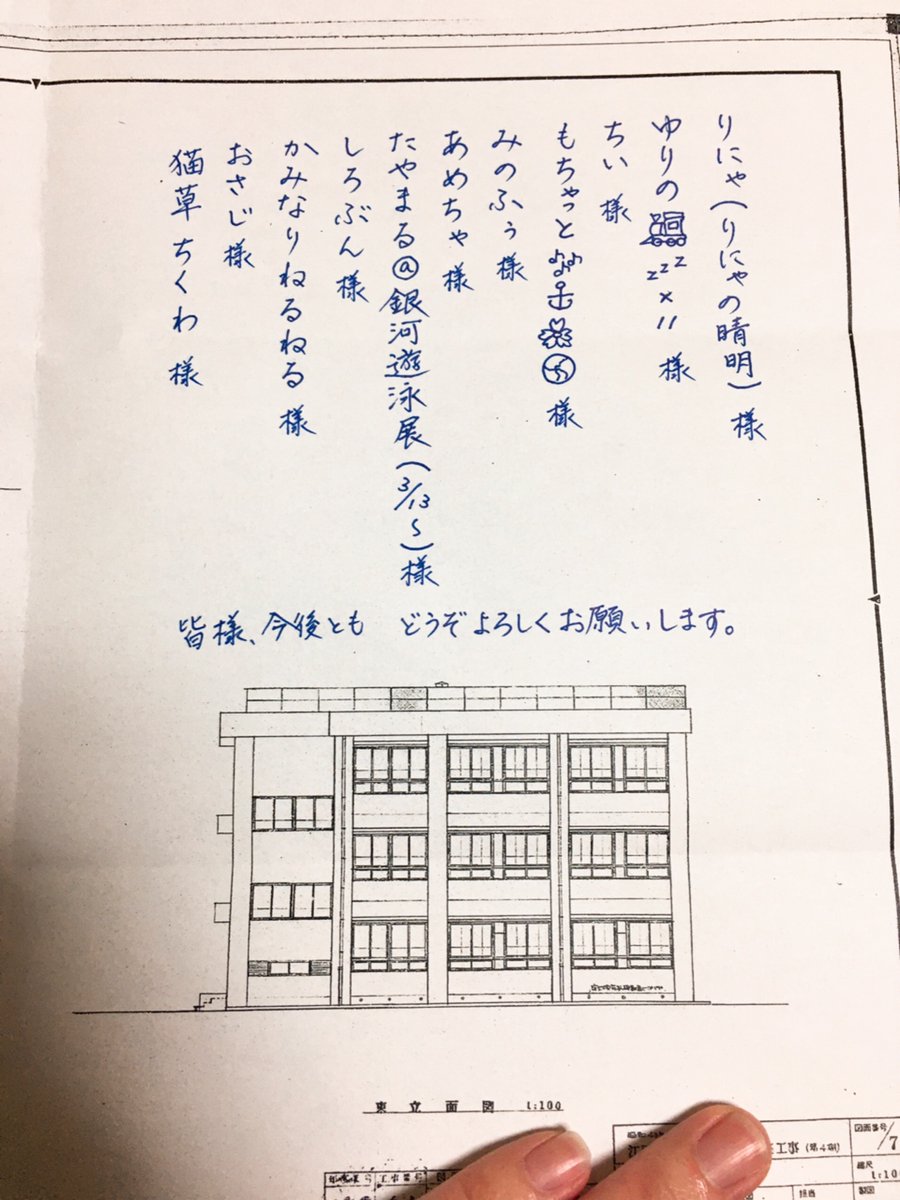 りにゃ(りにゃの晴明)様
ゆりの🚂zzz×11 様
ちい 様
もちゃっと🎶⚓🌸 様
みのふぅ様
あめちゃ様
たやまる@銀河遊泳展(3/13~)様
しろぶん様
かみなりねるねる様
おさじ様
猫草ちくわ 様
皆様、今後とも どうぞよろしくお願いします。
東立面図 1:100
工事(第4期)
図面番号
/7
工事番号
縮尺
1:100
担当
製図